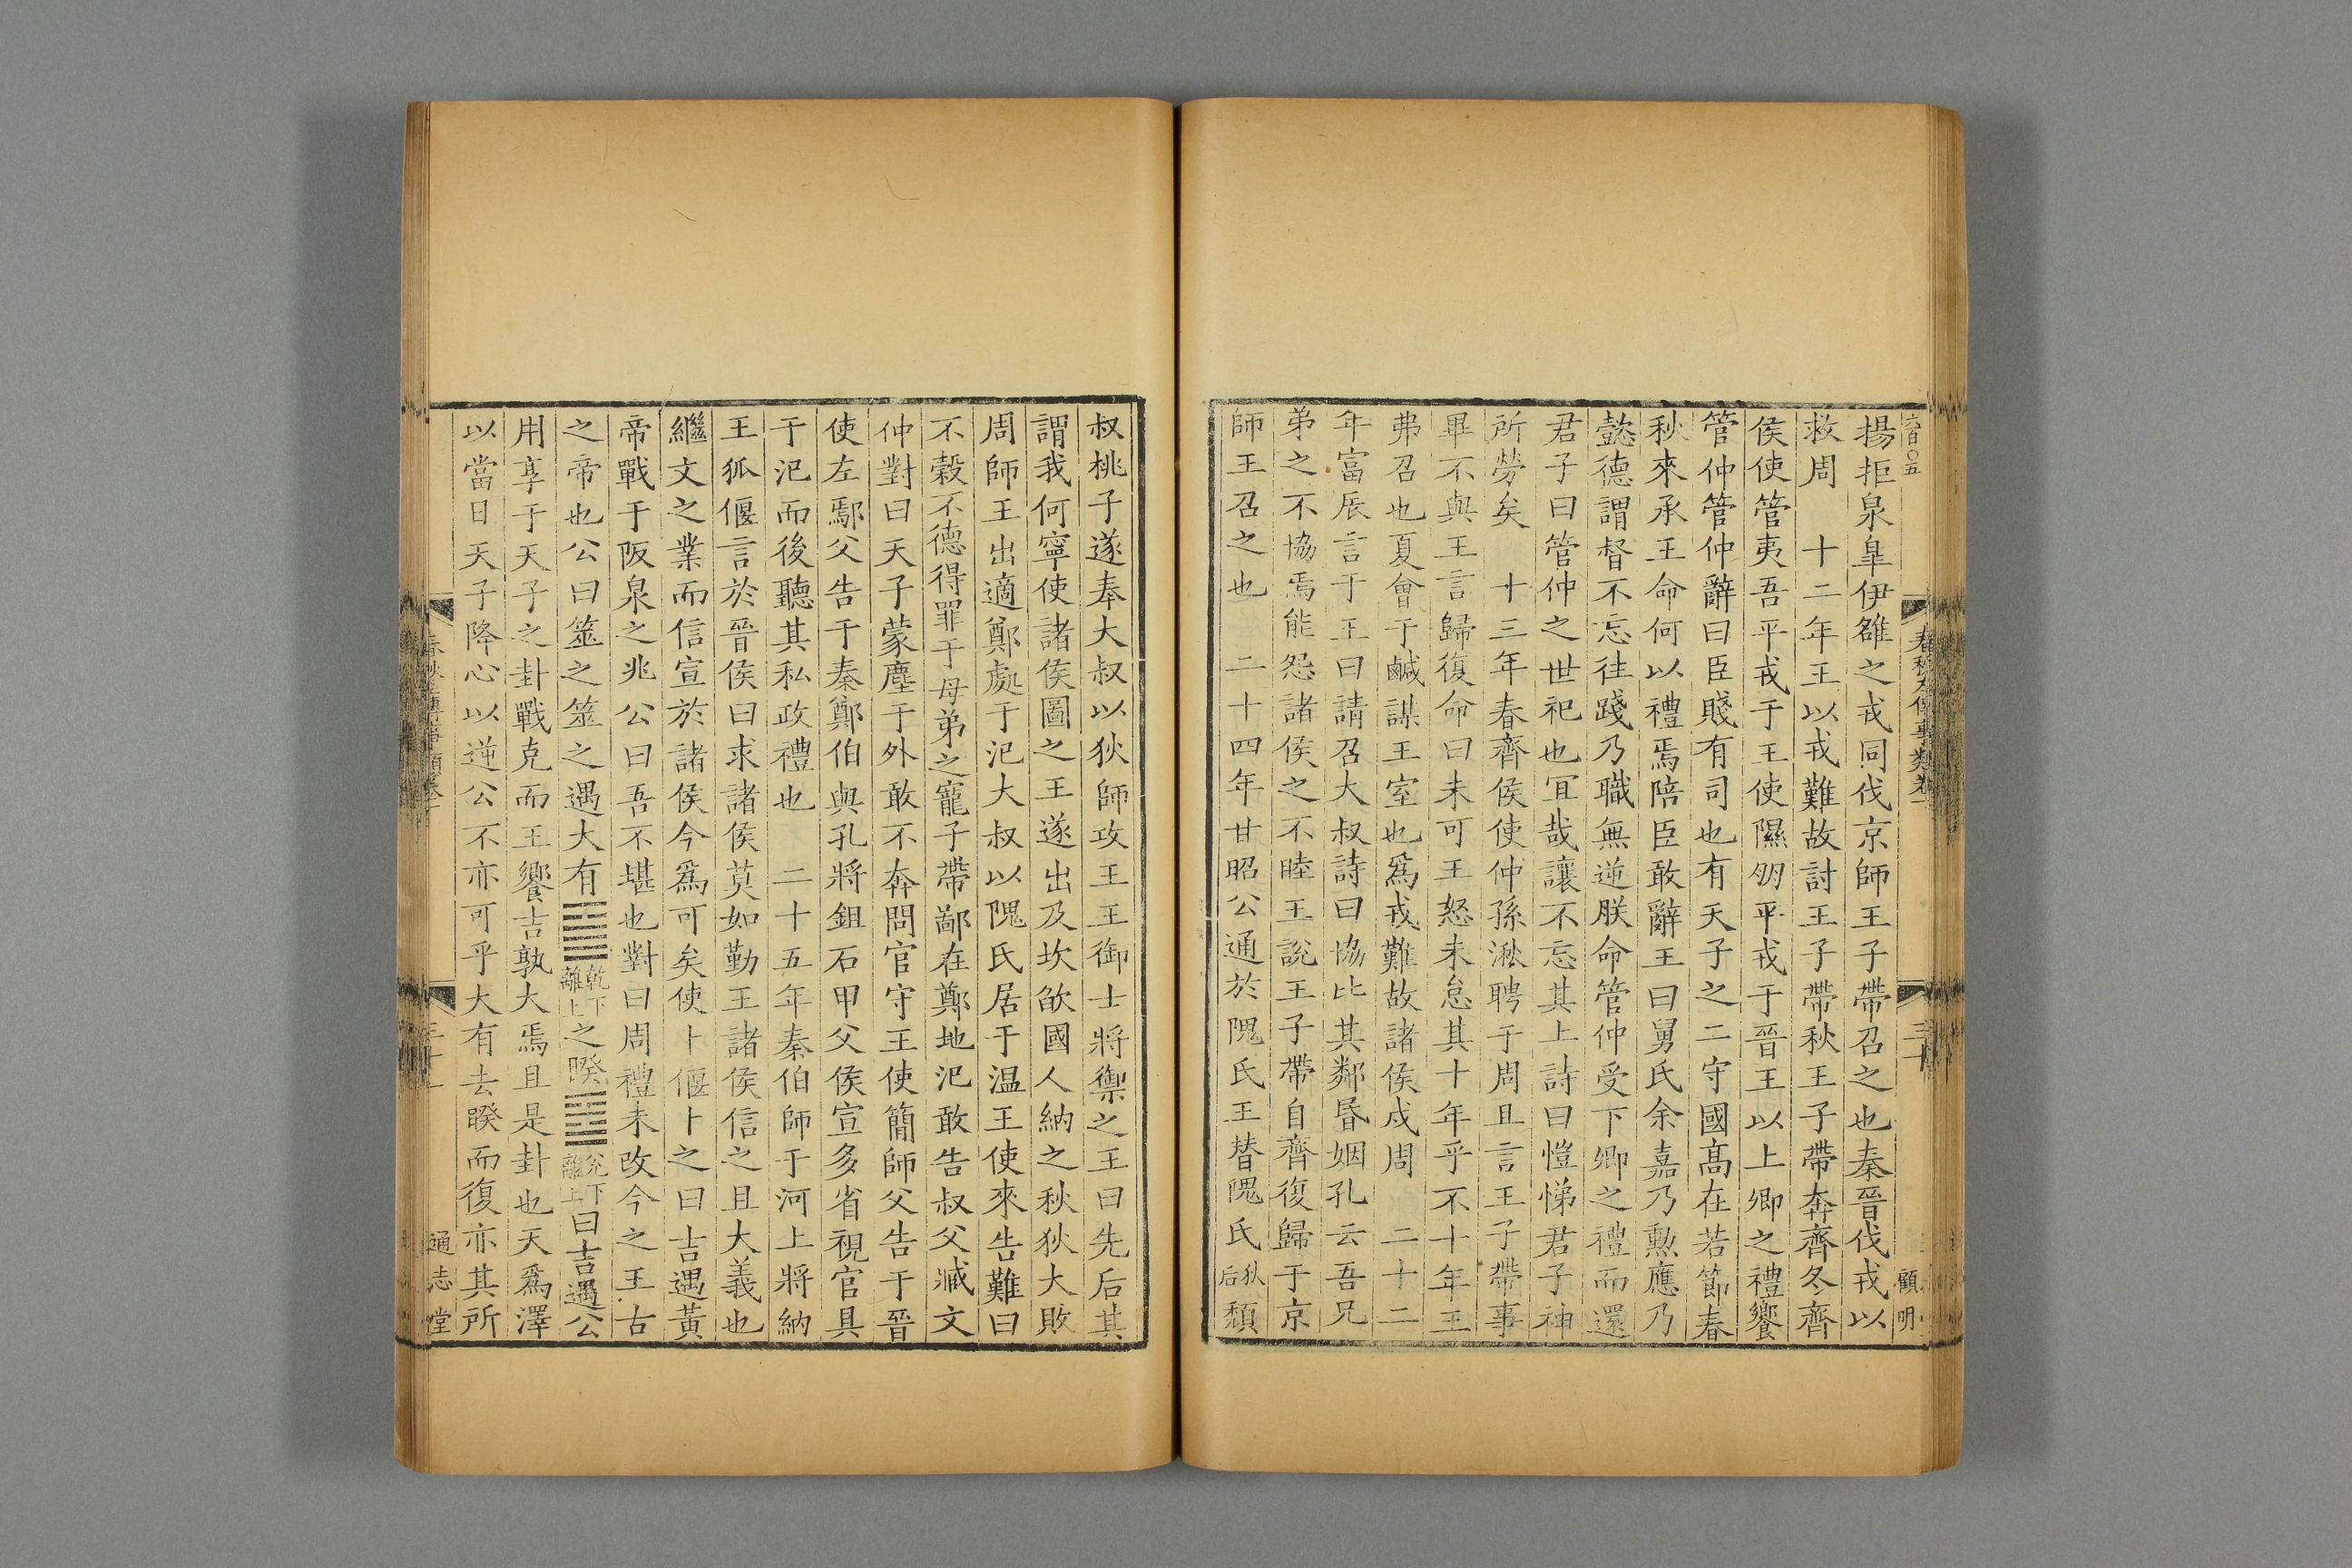 六百〇五
春秋左傳事類卷一
三十
顧明
揚拒泉臯伊雒之戎同伐京師王子帶召之也秦晉伐戎以
救周　十二年王以戎難故討王子帶秋王子帶奔齊冬齊
侯使管夷吾平戎于王使隰朋平戎于晉王以上卿之禮饗
管仲管仲辭曰臣賤有司也有天子之二守國髙在若節春
秋來承王命何以禮焉陪臣敢辭王曰舅氏余嘉乃勲應乃
懿德謂督不忘往踐乃職無逆朕命管仲受下卿之禮而還
君子曰管仲之世祀也宜哉讓不忘其上詩曰愷悌君子神
所勞矣　十三年春齊侯使仲孫湫聘于周且言王子帶事
畢不與王言歸復命曰未可王怒未怠其十年乎不十年王
弗召也夏會于鹹謀王室也爲戎難故諸侯戍周　二十二
年富辰言于王曰請召大叔詩曰協比其鄰昏姻孔云吾兄
弟之不協焉能怨諸侯之不睦王說王子帶自齊復歸于京
師王召之也　二十四年甘昭公通於隗氏王替隗氏狄后頹
叔桃子遂奉大叔以狄師攻王王御士將禦之王曰先后其
謂我何寧使諸侯圖之王遂出及坎欿國人納之秋狄大敗
周師王出適鄭處于氾大叔以隗氏居于温王使來告難曰
不穀不德得罪于母弟之寵子帶鄙在鄭地氾敢告叔父臧文
仲對曰天子蒙塵于外敢不奔問官守王使簡師父告于晉
使左鄢父告于秦鄭伯與孔將鉏石甲父侯宣多省視官具
于氾而後聽其私政禮也　二十五年秦伯師于河上將納
王狐偃言於晉侯曰求諸侯莫如勤王諸侯信之且大義也
繼文之業而信宣於諸侯今爲可矣使卜偃卜之曰吉遇黃
帝戰于阪泉之兆公曰吾不堪也對曰周禮未改今之王古
之帝也公曰筮之筮之遇大有䷍乾下離上之睽䷥兌下離上曰吉遇公
用享于天子之卦戰克而王饗吉孰大焉且是卦也天爲澤
以當日天子降心以逆公不亦可乎大有去睽而復亦其所
春秋左傳事類卷一
三十一
通志堂